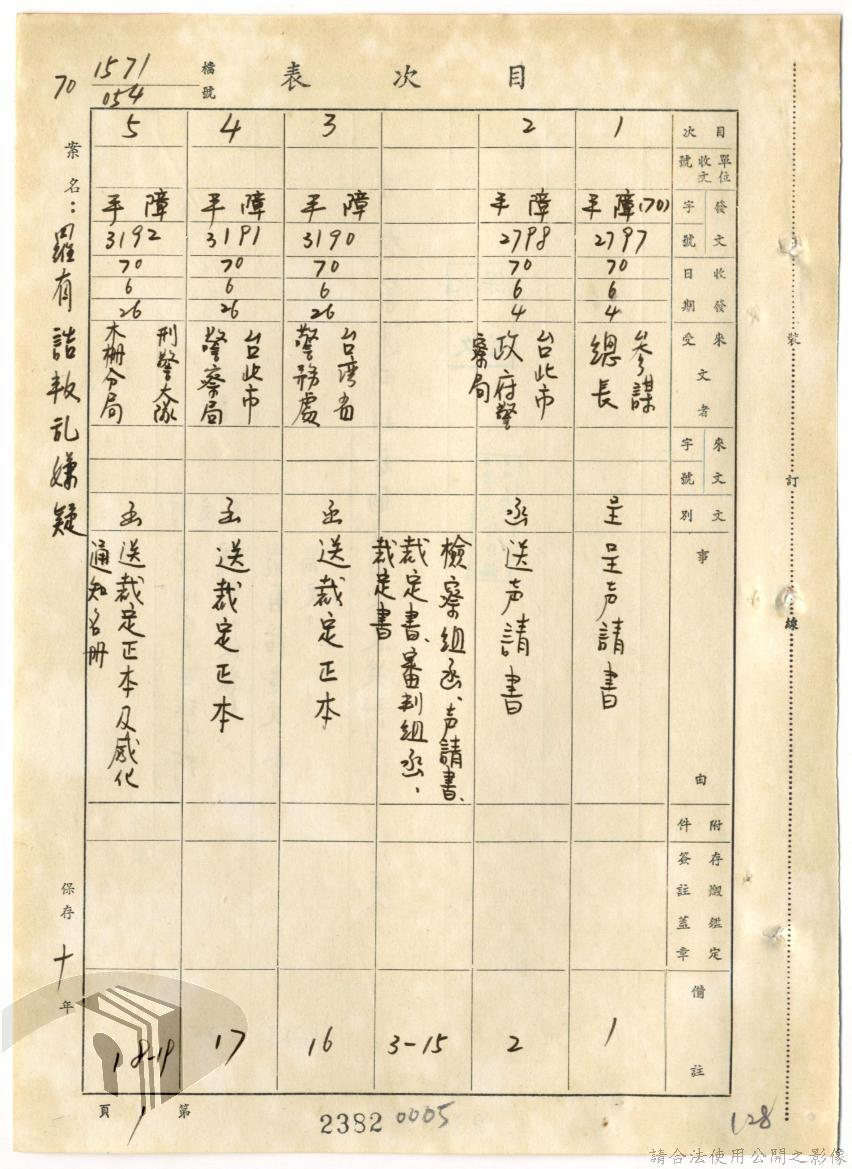 目次表
檔號
70 1571/054
案名：羅有喆叛乱嫌疑
保存十年
目次
單位收文號
發文字號
收發日期
來受文者
來文字號
文別
事由
附件
存燬鑑定簽註蓋章
備註
1
平障(70)
2797
70
6
4
參謀
總長
呈
呈声請書
1
2
平障
2798
70
6
4
台北市
政府警
察局
函
送声請書
2
檢察組函、声請書、
裁定書、審判組函、
裁定書
3-15
3
平障
3190
70
6
26
台湾省
警務處
函
送裁定正本
16
4
平障
3191
70
6
26
台北市
警察局
函
送裁定正本
17
5
平障
3192
70
6
26
刑警大隊
木柵分局
函
送裁定正本及感化
通知名冊
18-19
第1頁
裝訂線
2382 0005
128
請合法使用公開之影像